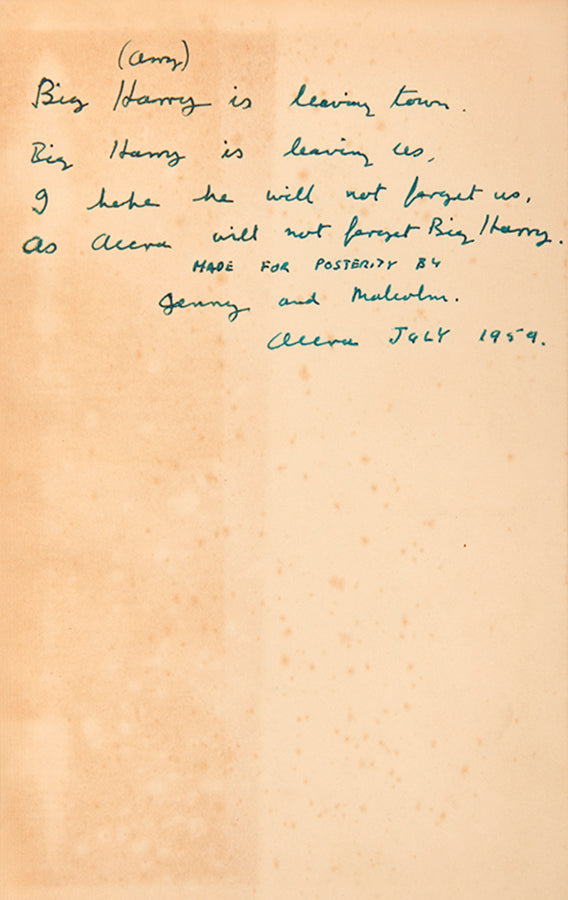 (arry)
Big Harry is leaving town.
Big Harry is leaving us,
I hope he will not forget us,
as Accra will not forget Big Harry.
MADE FOR POSTERITY BY
Jenny and Malcolm.
Accra JULY 1959.